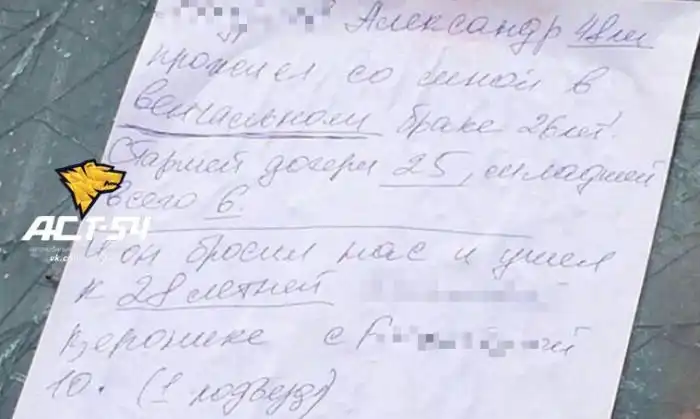 Александр 48 лет
прожил со мной в
венчальном браке 26 лет!
Старшей дочери 25, младшей
всего 6.
И он бросил нас и ушел
к 28 летней
Веронике с
10. (1 подъезд)
АСТ-54